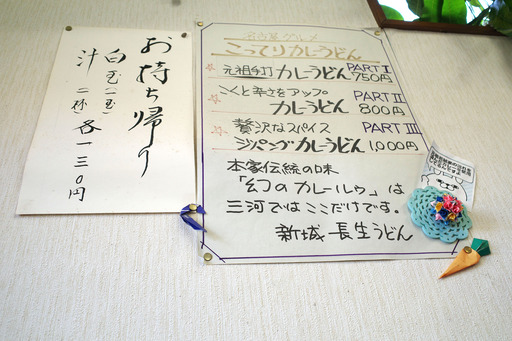 お持ち帰り
白玉(一玉)
汁(一杯) 各一三〇円
名古屋グルメ
こってりカレーうどん
元祖手打 カレーうどん PART I 750円
こくと辛さをアップ PART II
カレーうどん 800円
贅沢なスパイス PART III
ジパングカレーうどん 1,000円
本家伝統の味
「幻のカレールゥ」は
三河ではここだけです。
新城 長生うどん